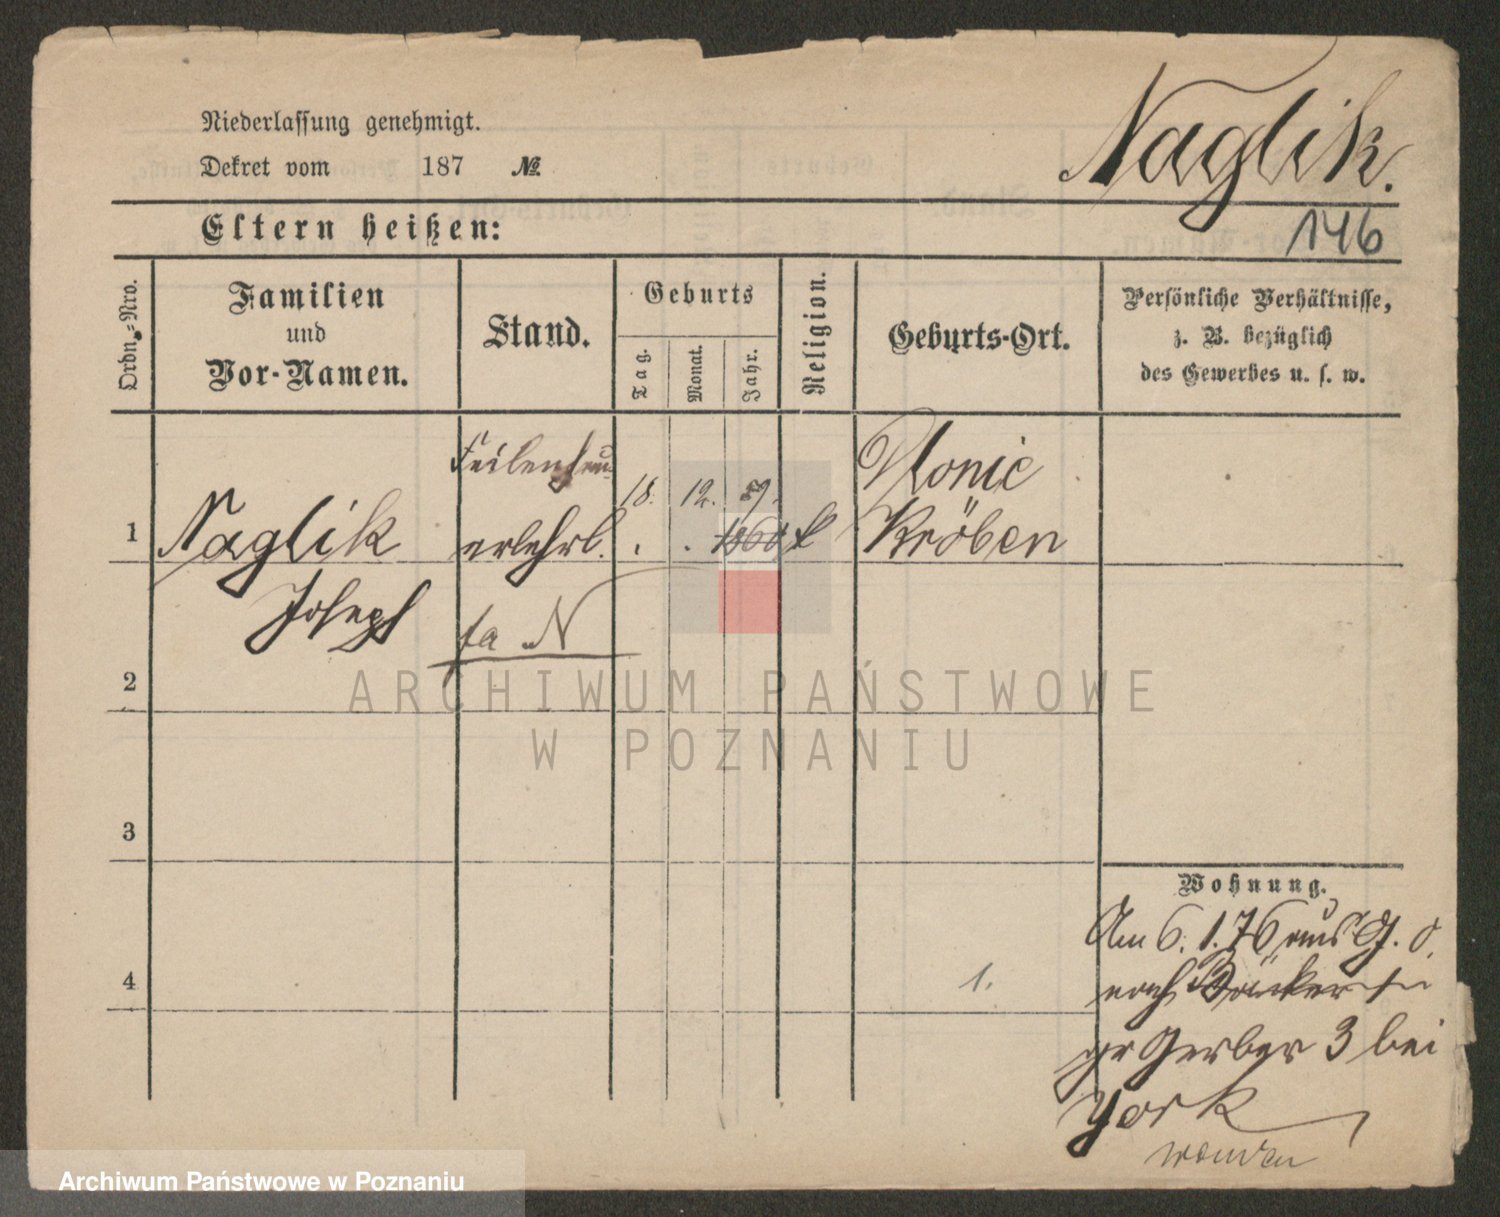 Niederlassung genehmigt.
Dekret vom 187 №
Naglik.
Eltern heißen:
146
Ordn.-Nro.
Familien
und
Vor-Namen.
Stand.
Geburts
Tag.
Monat.
Jahr.
Religion.
Geburts-Ort.
Persönliche Verhältnisse,
z. B. bezüglich
des Gewerbes u. s. w.
1
Naglik
Joseph
Feilenhau-
erlehrl.
18. 12. 59.
1860 k
Kröben
2
3
4
1.
Wohnung.
Am 6. 1. 76 aus G.
nach Bäcker
gr Gerber 3 bei
York
ARCHIWUM PAŃSTWOWE
W POZNANIU
Archiwum Państwowe w Poznaniu